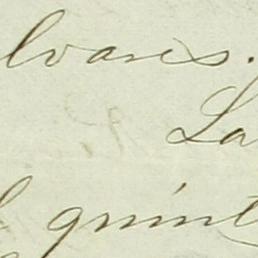 lvares.
La
quint